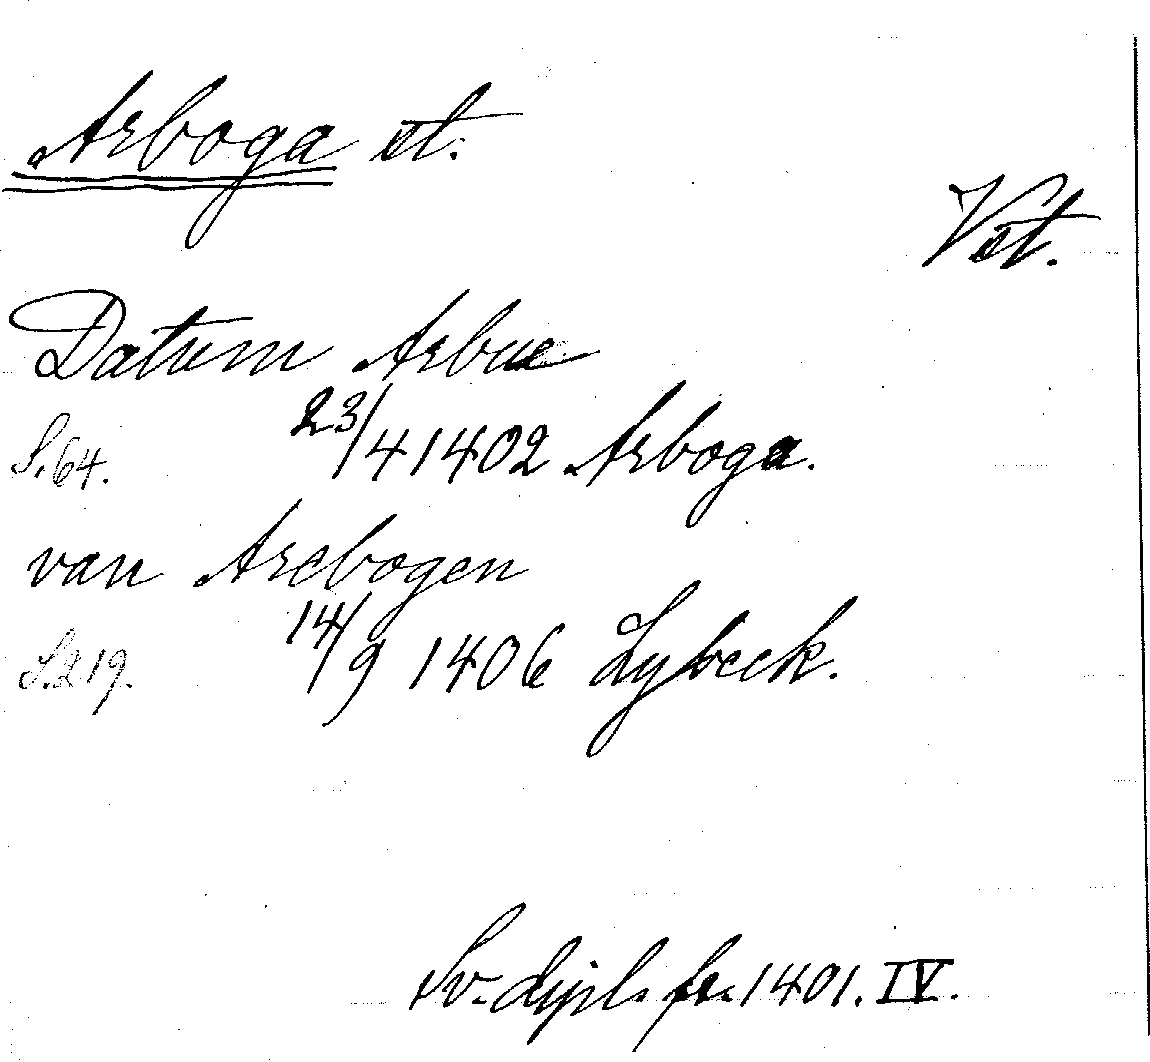 Arboga st.
Vst.
Datum Arbue
S.64. 23/4 1402 Arboga.
van Arebogen
S.219. 14/9 1406 Lybeck.
Sv. dipl. fr. 1401. IV.